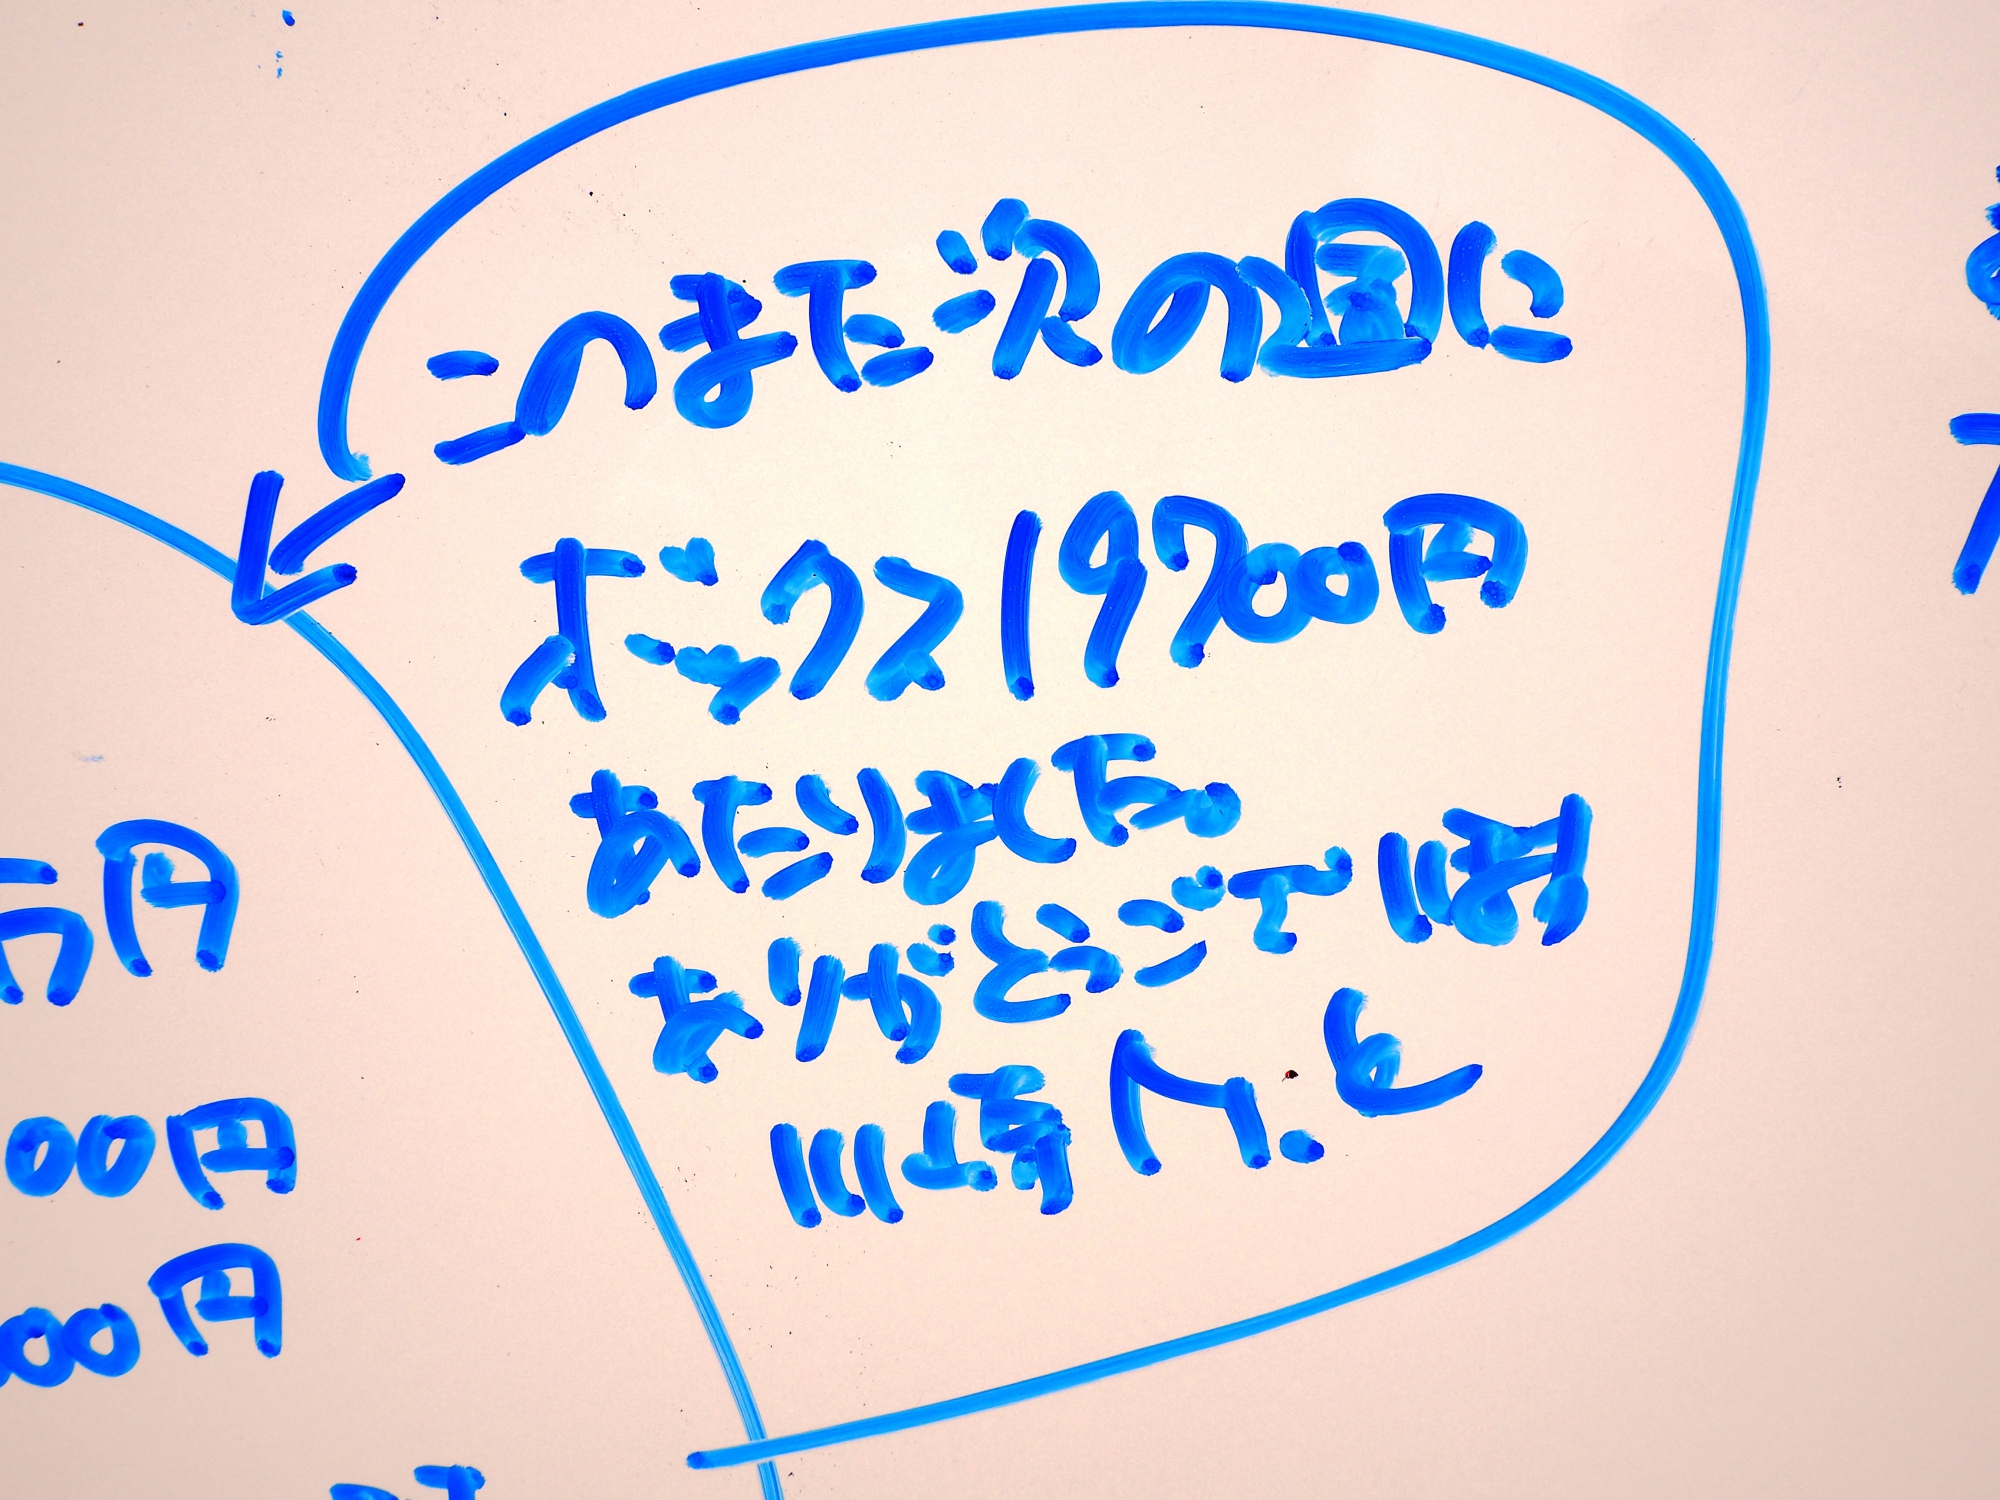 このまた次の週に
ボックス19700円
あたりました。
ありがとうございます
川崎 N.と
万円
00円
00円